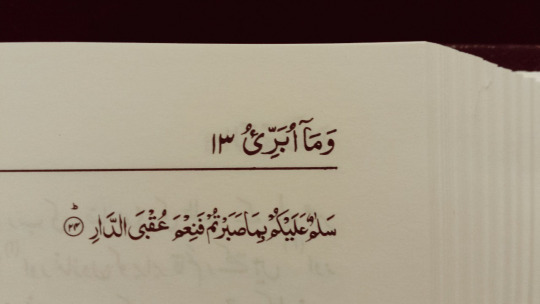 وَمَآ اُبَرِّئُ ۱۳
سَلٰمٌ عَلَيْكُمْ بِمَا صَبَرْتُمْ فَنِعْمَ عُقْبَى الدَّارِ ؕ ﴿۲۴﴾